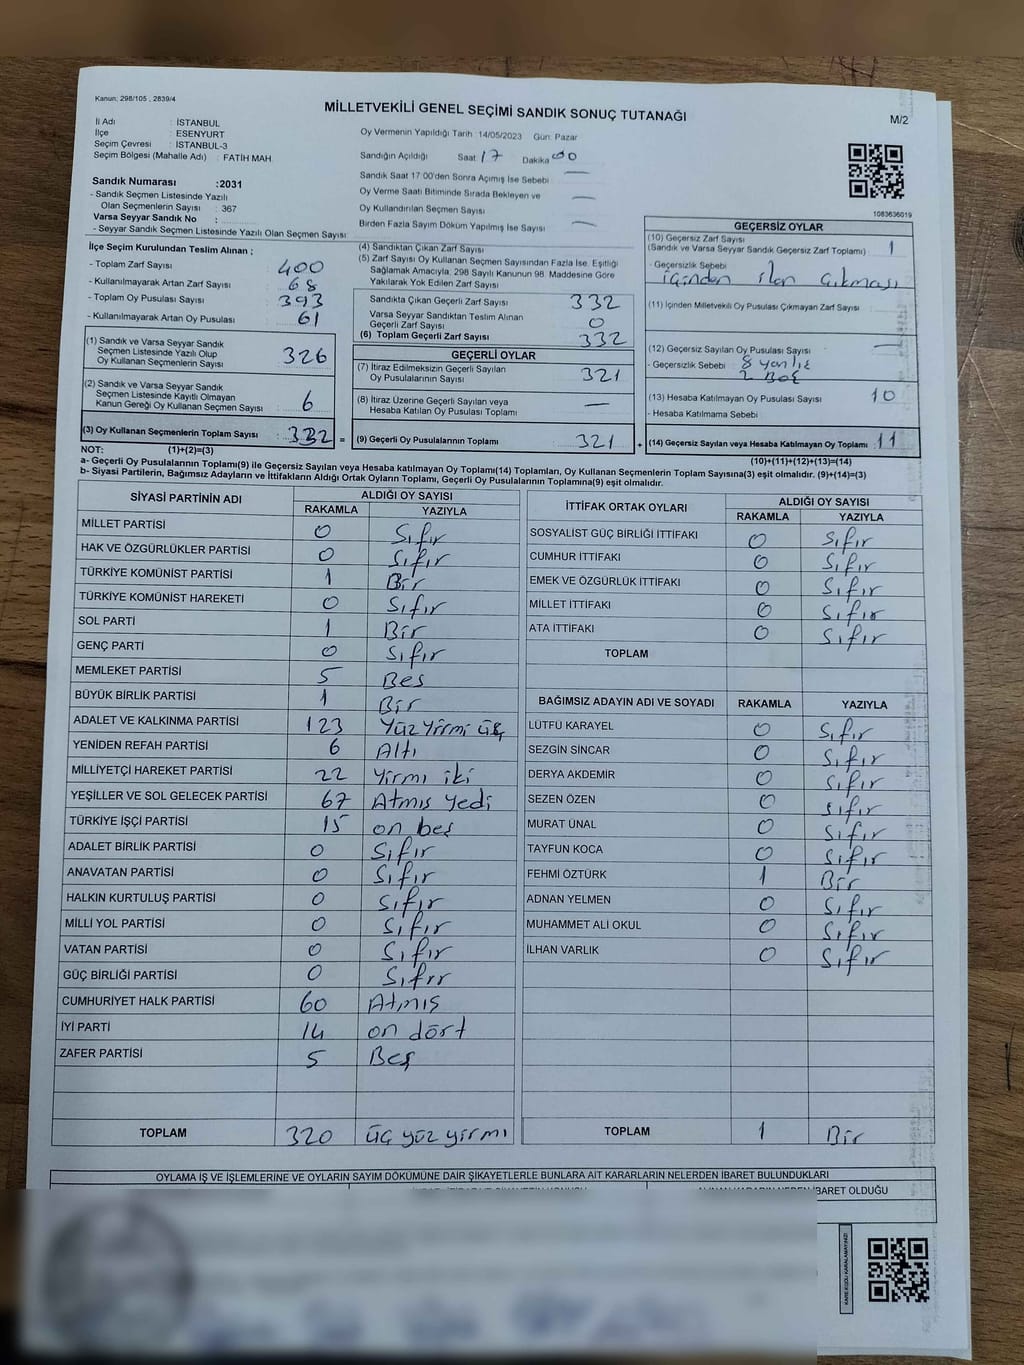 Kanun: 298/105 , 2839/4
MİLLETVEKİLİ GENEL SEÇİMİ SANDIK SONUÇ TUTANAĞI
M/2
İl Adı : İSTANBUL
İlçe : ESENYURT
Seçim Çevresi : İSTANBUL-3
Seçim Bölgesi (Mahalle Adı) : FATİH MAH
Sandık Numarası :2031
- Sandık Seçmen Listesinde Yazılı
Olan Seçmenlerin Sayısı : 367
Varsa Seyyar Sandık No :
- Seyyar Sandık Seçmen Listesinde Yazılı Olan Seçmen Sayısı:
Oy Vermenin Yapıldığı Tarih : 14/05/2023 Gün: Pazar
Sandığın Açıldığı Saat 17 Dakika 00
Sandık Saat 17:00'den Sonra Açımış İse Sebebi —
Oy Verme Saati Bitiminde Sırada Bekleyen ve
Oy Kullandırılan Seçmen Sayısı —
Birden Fazla Sayım Döküm Yapılmış İse Sayısı —
1083636019
İlçe Seçim Kurulundan Teslim Alınan ;
- Toplam Zarf Sayısı 400
- Kullanılmayarak Artan Zarf Sayısı 68
- Toplam Oy Pusulası Sayısı 393
- Kullanılmayarak Artan Oy Pusulası 61
(1) Sandık ve Varsa Seyyar Sandık
Seçmen Listesinde Yazılı Olup
Oy Kullanan Seçmenlerin Sayısı 326
(2) Sandık ve Varsa Seyyar Sandık
Seçmen Listesinde Kayıtlı Olmayan
Kanun Gereği Oy Kullanan Seçmen Sayısı 6
(3) Oy Kullanan Seçmenlerin Toplam Sayısı : 332 =
(4) Sandıktan Çıkan Zarf Sayısı
(5) Zarf Sayısı Oy Kullanan Seçmen Sayısından Fazla İse, Eşitliği
Sağlamak Amacıyla, 298 Sayılı Kanunun 98. Maddesine Göre
Yakılarak Yok Edilen Zarf Sayısı
Sandıkta Çıkan Geçerli Zarf Sayısı 332
Varsa Seyyar Sandıktan Teslim Alınan
Geçerli Zarf Sayısı 0
(6) Toplam Geçerli Zarf Sayısı 332
GEÇERLİ OYLAR
(7) İtiraz Edilmeksizin Geçerli Sayılan
Oy Pusulalarının Sayısı 321
(8) İtiraz Üzerine Geçerli Sayılan veya
Hesaba Katılan Oy Pusulası Toplamı —
(9) Geçerli Oy Pusulalarının Toplamı 321 +
GEÇERSİZ OYLAR
(10) Geçersiz Zarf Sayısı
(Sandık ve Varsa Seyyar Sandık Geçersiz Zarf Toplamı) 1
- Geçersizlik Sebebi
içinden ilan çıkması
(11) İçinden Milletvekili Oy Pusulası Çıkmayan Zarf Sayısı
(12) Geçersiz Sayılan Oy Pusulası Sayısı —
- Geçersizlik Sebebi 8 yanlış
2 Boş
(13) Hesaba Katılmayan Oy Pusulası Sayısı 10
- Hesaba Katılmama Sebebi
(14) Geçersiz Sayılan veya Hesaba Katılmayan Oy Toplamı 11
NOT: (1)+(2)=(3) (10)+(11)+(12)+(13)=(14)
a- Geçerli Oy Pusulalarının Toplamı(9) ile Geçersiz Sayılan veya Hesaba katılmayan Oy Toplamı(14) Toplamları, Oy Kullanan Seçmenlerin Toplam Sayısına(3) eşit olmalıdır. (9)+(14)=(3)
b- Siyasi Partilerin, Bağımsız Adayların ve İttifakların Aldığı Ortak Oyların Toplamı, Geçerli Oy Pusulalarının Toplamına(9) eşit olmalıdır.
SİYASİ PARTİNİN ADI ALDIĞI OY SAYISI
RAKAMLA YAZIYLA
MİLLET PARTİSİ 0 Sıfır
HAK VE ÖZGÜRLÜKLER PARTİSİ 0 Sıfır
TÜRKİYE KOMÜNİST PARTİSİ 1 Bir
TÜRKİYE KOMÜNİST HAREKETİ 0 Sıfır
SOL PARTİ 1 Bir
GENÇ PARTİ 0 Sıfır
MEMLEKET PARTİSİ 5 Bes
BÜYÜK BİRLİK PARTİSİ 1 Bir
ADALET VE KALKINMA PARTİSİ 123 Yüz Yirmi üç
YENİDEN REFAH PARTİSİ 6 Altı
MİLLİYETÇİ HAREKET PARTİSİ 22 Yirmi iki
YEŞİLLER VE SOL GELECEK PARTİSİ 67 Atmış yedi
TÜRKİYE İŞÇİ PARTİSİ 15 on beş
ADALET BİRLİK PARTİSİ 0 Sıfır
ANAVATAN PARTİSİ 0 Sıfır
HALKIN KURTULUŞ PARTİSİ 0 Sıfır
MİLLİ YOL PARTİSİ 0 Sıfır
VATAN PARTİSİ 0 Sıfır
GÜÇ BİRLİĞİ PARTİSİ 0 Sıfır
CUMHURİYET HALK PARTİSİ 60 Atmış
İYİ PARTİ 14 on dört
ZAFER PARTİSİ 5 Beş
TOPLAM 320 üç yüz yirmi
İTTİFAK ORTAK OYLARI ALDIĞI OY SAYISI
RAKAMLA YAZIYLA
SOSYALİST GÜÇ BİRLİĞİ İTTİFAKI 0 Sıfır
CUMHUR İTTİFAKI 0 Sıfır
EMEK VE ÖZGÜRLÜK İTTİFAKI 0 Sıfır
MİLLET İTTİFAKI 0 Sıfır
ATA İTTİFAKI 0 Sıfır
TOPLAM
BAĞIMSIZ ADAYIN ADI VE SOYADI RAKAMLA YAZIYLA
LÜTFÜ KARAYEL 0 Sıfır
SEZGİN SİNCAR 0 Sıfır
DERYA AKDEMİR 0 Sıfır
SEZEN ÖZEN 0 Sıfır
MURAT ÜNAL 0 Sıfır
TAYFUN KOCA 0 Sıfır
FEHMİ ÖZTÜRK 1 Bir
ADNAN YELMEN 0 Sıfır
MUHAMMET ALİ OKUL 0 Sıfır
İLHAN VARLIK 0 Sıfır
TOPLAM 1 Bir
OYLAMA İŞ VE İŞLEMLERİNE VE OYLARIN SAYIM DÖKÜMÜNE DAİR ŞİKAYETLERLE BUNLARA AİT KARARLARIN NELERDEN İBARET BULUNDUKLARI
ALINAN KARARIN NEDEN İBARET OLDUĞU
KARE KODU KARALAMAYINIZ!